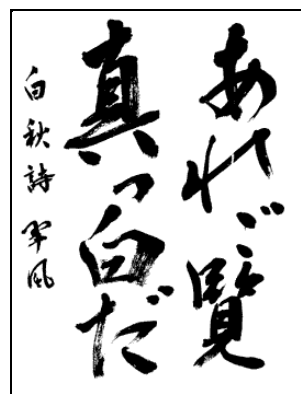 あれご覧
真っ白だ
白秋詩 翠風